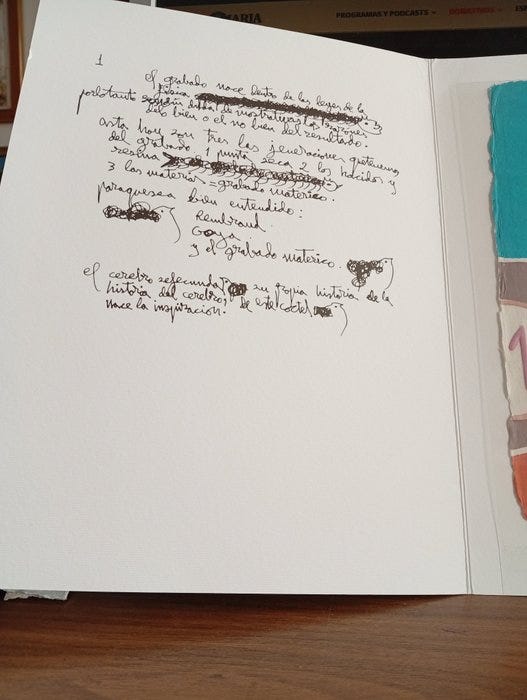 ARIA
PROGRAMAS Y PODCASTS
DONATIVOS
1
el grabado nace dentro de las leyes de la
física y
porlotanto son sin duda de mostrativas las razones
del bien o el no bien del resultado.
asta hoy son tres las jeneraciones quetenemos
del grabado 1 punta seca 2 los hacidos y
resina
3 las materias = grabado materico.
paraquesea bien entendido:
Rembrand.
Goya.
y el grabado materico.
el cerebro sefecunda, su propia historia de la
historia del cerebro, de este coctel
nace la inspiracion.